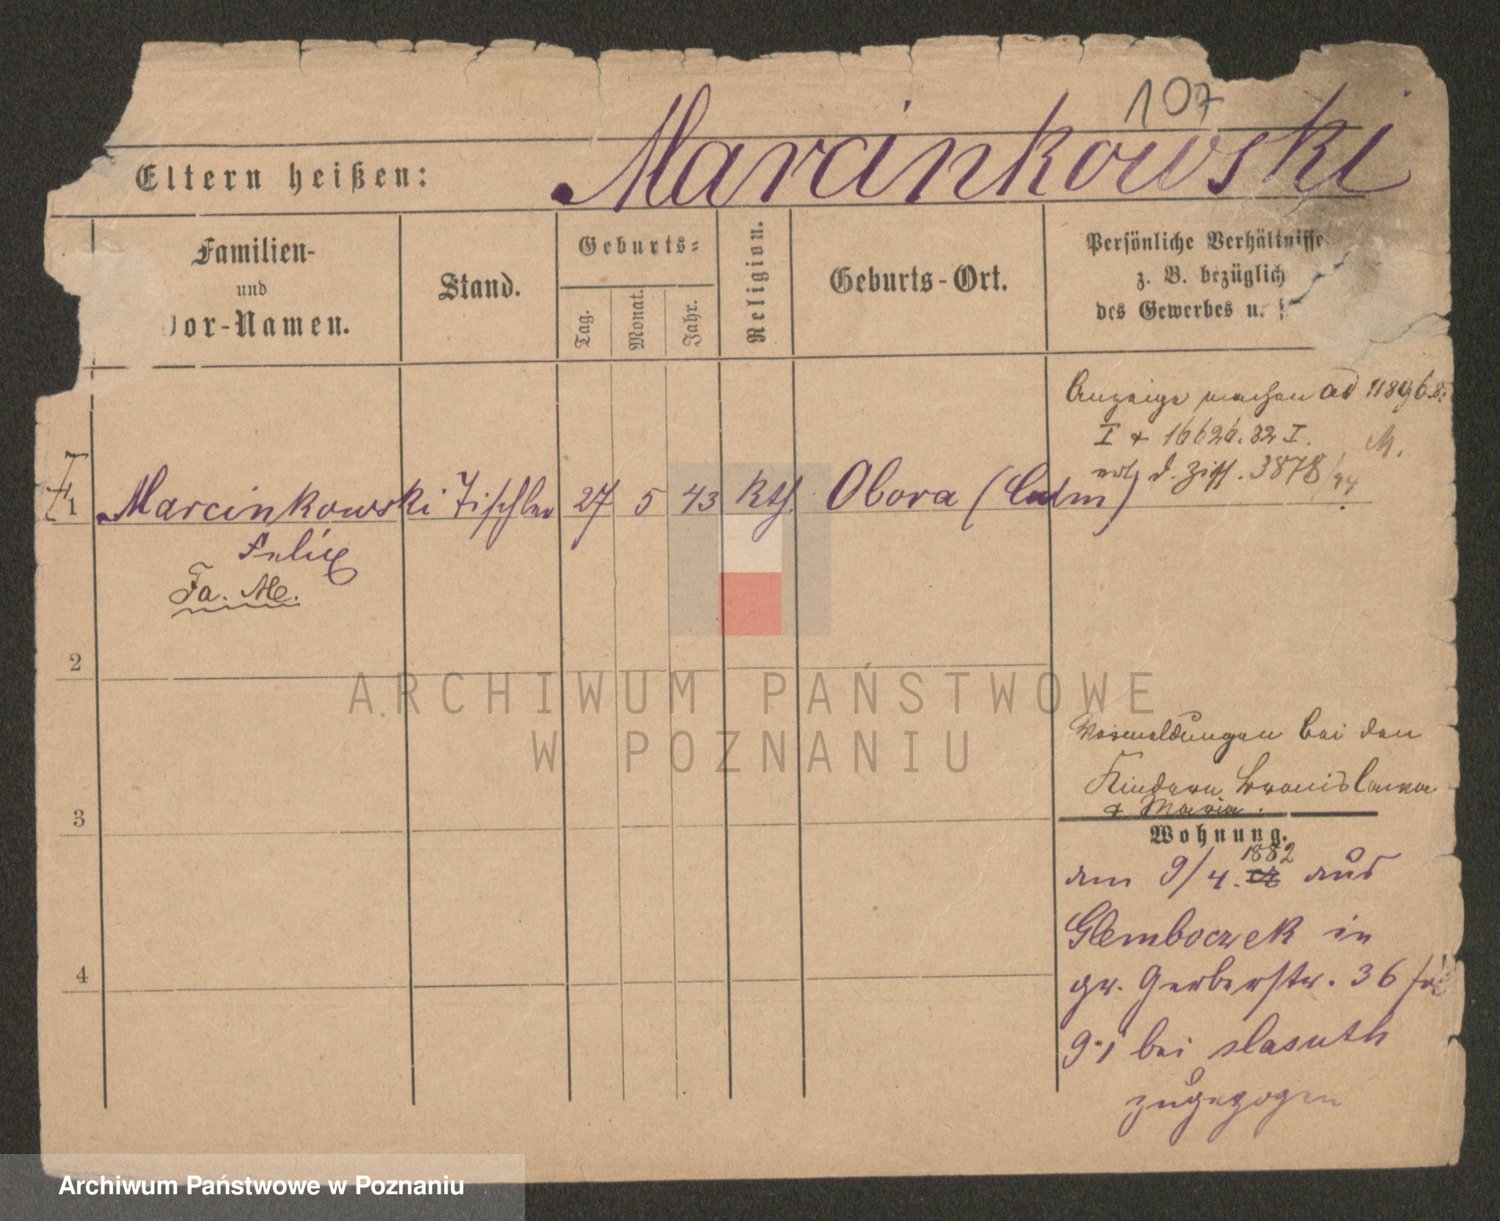 107
Marcinkowski
Eltern heißen:
Familien-
und
Vor-Namen.
Stand.
Geburts-
Tag.
Monat.
Jahr.
Religion.
Geburts-Ort.
Persönliche Verhältnisse
z. B. bezüglich
des Gewerbes u.
Anzeige machen ad 11896.82
I & 16626.82 I.
M.
d. Ziff. 3878/94
1 Marcinkowski Tischler 27 5 43 kth. Obora (Culm)
Felix
Fa. M.
2
3
4
ARCHIWUM PAŃSTWOWE
W POZNANIU
Vormeldungen bei den
Kindern Bronislawa
& Maria.
Wohnung.
1882
am 9/4. aus
Glemboczek in
gr. Gerberstr. 36
bei
zugezogen
Archiwum Państwowe w Poznaniu